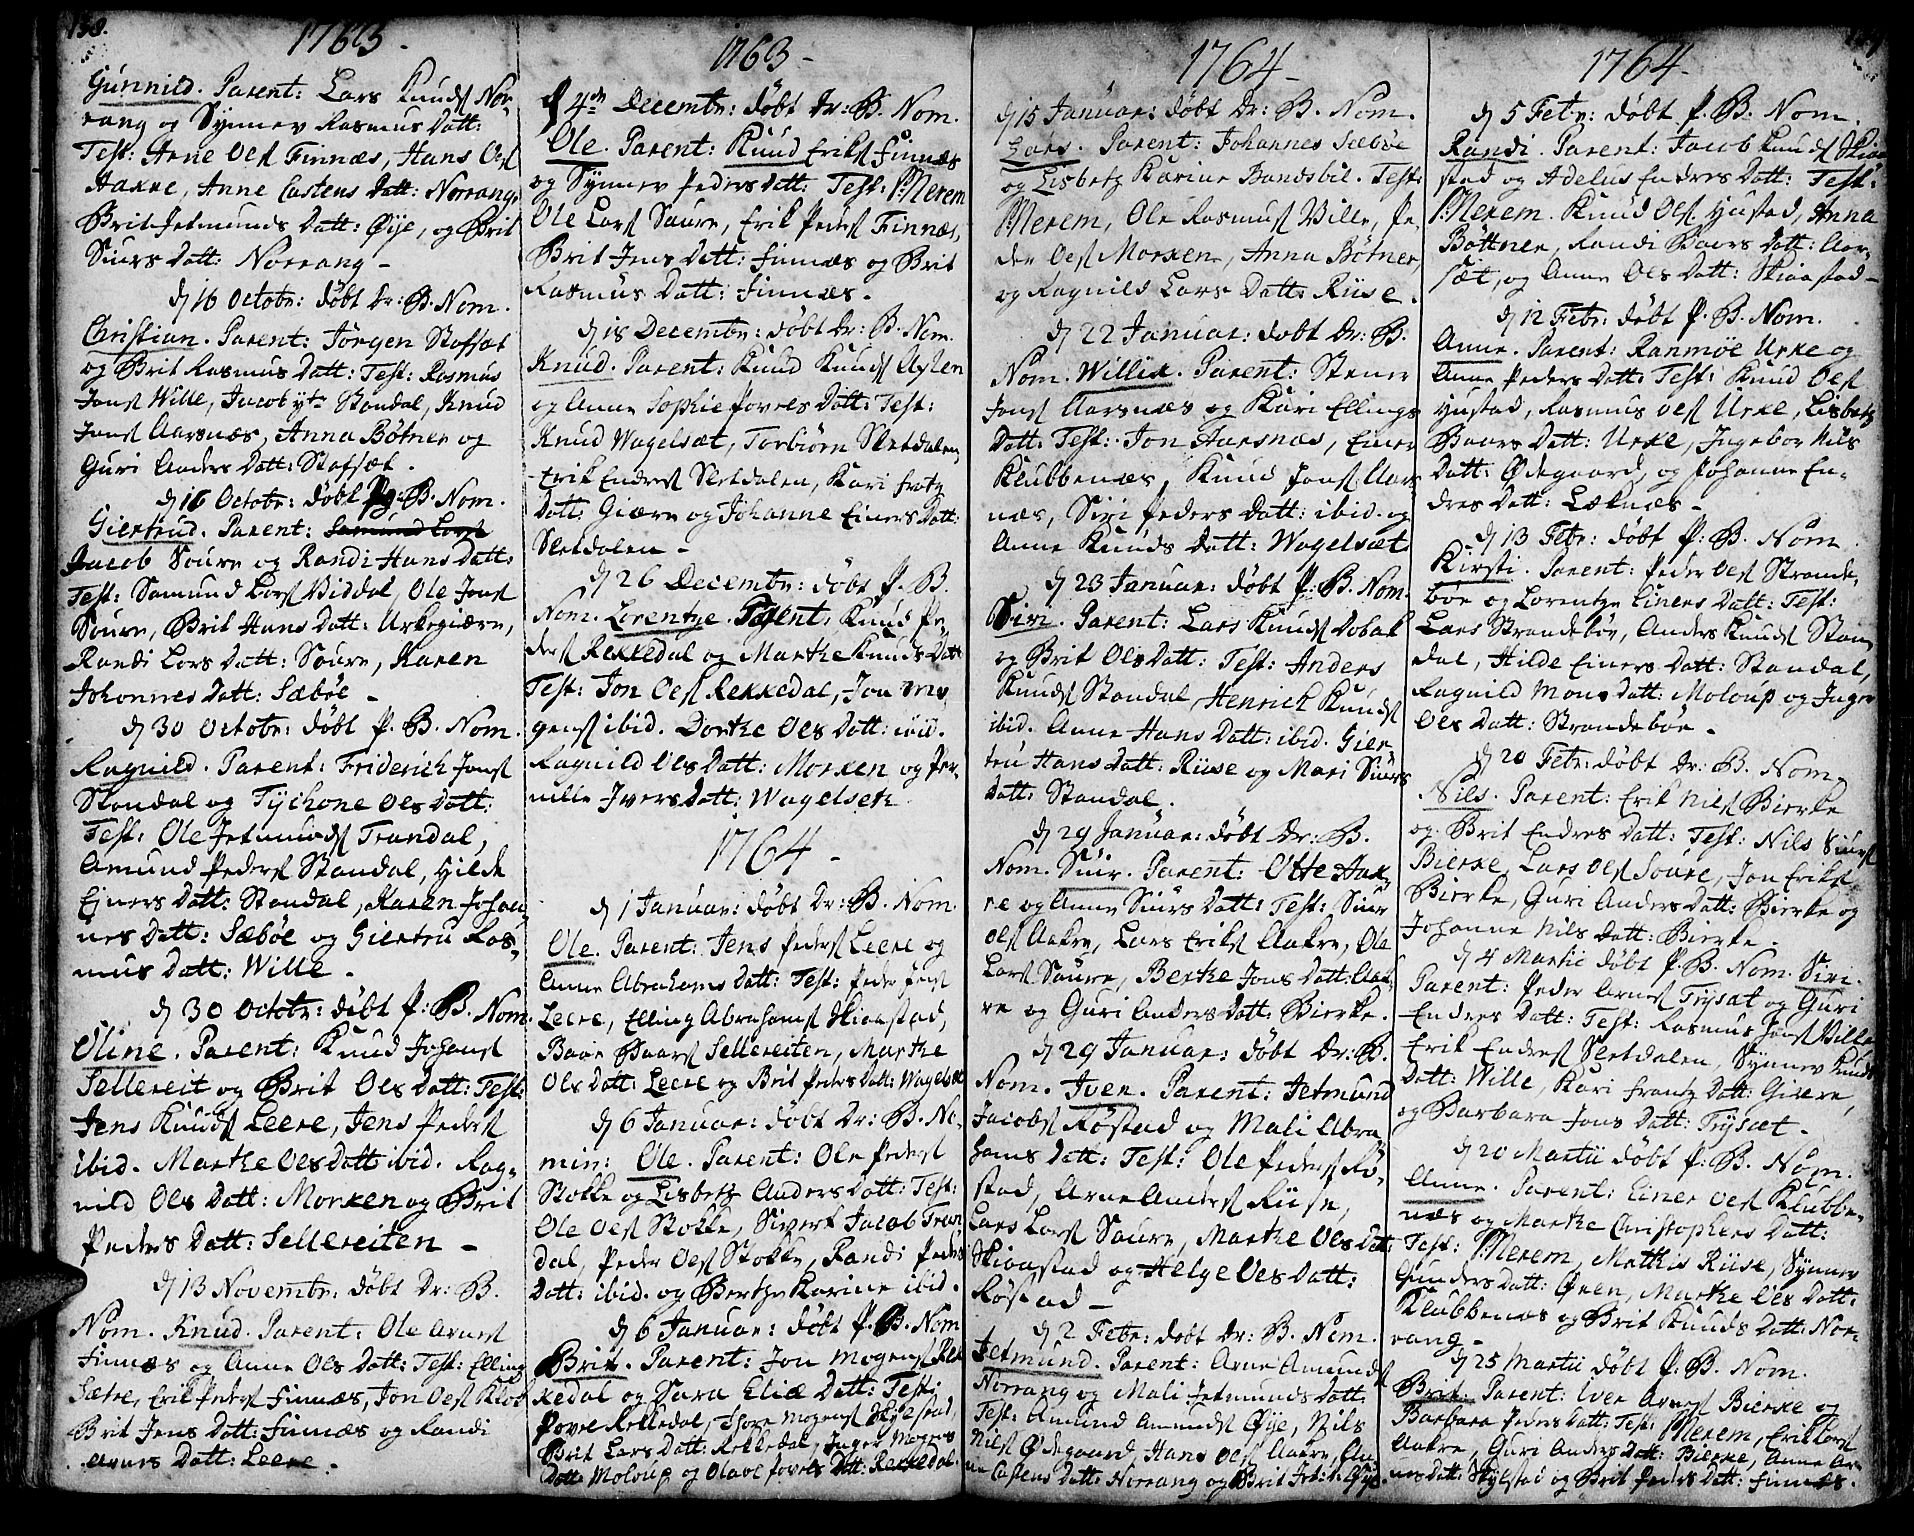 138.
1763.
Gunnild. Parent: Lars Knuds Nor-
rang og Synnev Rasmus Datt:
Test: Arne Oels Finnæs, Hans Oels
Aakre, Anne Castens Datt: Norrang,
Brit Jetmunds Datt: Øye, og Brit
Siurs Datt: Norrang -
d 16 Octobr: døbt Dr: B. Nom.
Christian. Parent: Jørgen Stafsæt
og Brit Rasmus Datt: Test: Rasmus
Jons Wille, Jacob ytr Standal, Knud
Jons Aarsnæs, Anna Bøtner og
Guri Anders Datt: Stafsæt.
d 16 Octobr: døbt P: B. Nom.
Giertrud. Parent: Samund Lars
Jacob Soure og Randi Hans Datt:
Test: Samund Lars Viddal, Ole Jons
Soure, Brit Hans Datt: Urkegiære,
Randi Lars Datt: Soure, Karen
Johannes Datt: Sæbøe -
d 30 Octobr: døbt P. B. Nom.
Ragnild. Parent: Friderich Jons
Standal og Tychone Oels Datt:
Test: Ole Jetmunds Trandal,
Amund Peders Standal, Hilde
Ejners Datt: Standal, Karen Johan-
nes Datt: Sæbøe og Giertru Ras-
mus Datt: Wille.
d 30 Octobr: døbt P: B. Nom.
Oline. Parent: Knud Johans
Sellereit og Brit Oels Datt: Test:
Jens Knuds Leere, Jens Peders
ibid. Marthe Oels Datt: ibid. Rag-
nild Oels Datt: Morken og Brit
Peders Datt: Sellereiten -
d 13 Novembr: døbt Dr: B.
Nom. Knud. Parent: Ole Arnes
Finnæs og Anne Oels Datt: Test: Elling
Sætre, Erik Peders Finnæs, Jon Oels Klok
Brit Jens Datt: Finnæs og Randi
Arnes Datt: Leere.
1763-
d 4de Decembr: døbt Dr: B. Nom.
Ole. Parent: Knud Eriks Finnæs
og Synnev Peders Datt: Test: Merem
Ole Lars Saure, Erik Peders Finnæs,
Brit Jens Datt: Finnæs og Brit
Rasmus Datt: Finnæs.
d 18 Decembr: døbt Dr: B. Nom.
Knud. Parent: Knud Knuds
og Anne Sophie Povels Datt: Test:
Knud Wagelsæt, Torbiørn Sletdalen,
Erik Endres Sletdalen, Kari Frotz
Datt: Giære og Johanne Einers Datt:
Sletdalen -
d 26 Decembr: døbt P. B.
Nom. Lorentze. Parent: Knud Pe-
ders Rekkedal og Marthe Knuds Datt:
Test: Jon Oels Rekkedal, Jon Mo-
gens ibid. Dorthe Oels Datt: ibid.
Ragnild Oels Datt: Morken og Per-
nille Ivers Datt: Wagelseth
1764 -
d 1 Januar: døbt Dr: B. Nom.
Ole. Parent: Jens Peders Leere og
Anne Abrahams Datt: Test: Peder Jens
Leere, Elling Abrahams Skiaastad,
Baar Baars Sellereiten, Marthe
Oels Datt: Leere og Brit Peders Datt: Wagelset
d 6 Januar: døbt Dr: B. No-
min: Ole. Parent: Ole Peders
Stokke og Lisbeth Anders Datt: Test:
Ole Oels Stokke, Sivert Jacob Tran-
dal, Peder Oels Stokke, Randi Peders
Datt: ibid. og Berthe Karine ibid.
d 6 Januar: døbt P. B. Nom
Brit. Parent: Jon Mogens Rek-
kedal og Sara Eliæ Datt: Test:
Povel Rekkedal, Thore Mogens Skylstad,
Brit Lars Datt: Rekkedal, Inger Mogens
Datt: Moloup og Olave Povels Datt: Rekkedal.
1764-
d 15 Januar: døbt Dr: B. Nom.
Lars. Parent: Johannes Sæbøe
og Lisbeth Karine Bandsbil. Test:
Merem, Ole Rasmus Wille, Pe-
der Oels Morken, Anna Bøtner,
og Ragnild Lars Datt: Riise.
d 22 Januar: døbt Dr: B.
Nom. Willix. Parent: Stener
Jons Aarsnæs og Kari Ellings
Datt: Test: Jon Aarsnæs, Einer
Klubbenæs, Knud Jons Aars-
næs, Siri Peders Datt: ibid. og
Anne Knuds Datt: Wagelsæt
d 23 Januar: døbt P: B. Nom.
Siri. Parent: Lars Knuds Dobak
og Brit Oels Datt: Test: Anders
Knuds Standal, Henrich Knuds
ibid. Anne Hans Datt: ibid. Gier-
tru Hans Datt: Riise og Mari Siurs
Datt: Standal.
d 29 Januar: døbt Dr: B.
Nom. Siur. Parent: Otte Aak-
re og Anne Siurs Datt: Test: Siur
Oels Aakre, Lars Eriks Aakre, Ole
Lars Saure, Berthe Jons Datt: Aak-
re og Guri Anders Datt: Bierke.
d 29 Januar: døbt Dr: B.
Nom. Iver. Parent: Jetmund
Jacobs Røstad og Mali Abra-
hams Datt: Test: Ole Peders Rø-
stad, Arne Anders Riise,
Lars Lars Saure, Marthe Oels Datt:
Skiaastad og Helge Oels Datt:
Røstad -
d 2 Febr: døbt Dr: B. Nom.
Jetmund. Parent: Arne Amunds
Norrang og Mali Jetmunds Datt:
Test: Amund Amunds Øye, Nils
Nils Ødegaard, Hans Oels Aakre, An-
ne Castens Datt: Norrang og Brit Jetm: Øye.
1764.
d 5 Febr: døbt P. B. Nom.
Randi. Parent: Jacob Knuds Skiaa-
stad og Adelus Endres Datt: Test:
Merem. Knud Oels Hustad, Anna
Bøttner, Randi Baars Datt: Aar-
sæt, og Anne Oels Datt: Skiaastad -
d 12 Febr: døbt P. B. Nom.
Anne. Parent: Ranmøe Urke og
Anne Peders Datt: Test: Knud Oels
Hustad, Rasmus Oels Urke, Lisbeth
Baars Datt: Urke, Ingebor Nils
Datt: Ødegaard, og Johanne En-
dres Datt: Leknæs -
d 13 Febr: døbt P: B. Nom.
Kirsti. Parent: Peder Oels Strande-
bøe og Lorentze Einers Datt: Test:
Lars Strandebøe, Anders Knuds Stan-
dal, Hilde Einers Datt: Standal,
Ragnild Mons Datt: Moloup og Inger
Oels Datt: Strandebøe -
d 20 Febr: døbt Dr: B. Nom.
Nils. Parent: Erik Nils Bierke
og Brit Endres Datt: Test: Nils Siurs
Bierke, Lars Oels Soure, Jon Eriks
Bierke, Guri Anders Datt: Bierke og
Johanne Nils Datt: Bierke.
d 4 Martii døbt P. B. Nom. Siri.
Parent: Peder Arnes Trysæt og Guri
Endres Datt: Test: Rasmus Jons Wille
Erik Endres Sletdalen, Synnev Knuds
Datt: Wille, Kari Frantz Datt: Giære,
og Barbara Jons Datt: Trysæt -
d 20 Martii døbt P: B. Nom.
Anne. Parent: Einer Oels Klubbe-
næs og Marthe Christophers Datt:
Test: Merem, Mathis Riise, Synnev
Gunders Datt: Øren, Marthe Oels Datt:
Klubbenæs og Brit Knuds Datt: Nor-
rang -
d 25 Martii døbt P: B. Nom.
Brit. Parent: Iver Arnes Bierke og
Barbara Peders Datt: Test: Merem, Erik Lars
Aakre, Guri Anders Datt: Bierke, Anne Ar-
nes Datt: Skylstad og Brit Peders Datt: Finnæs.